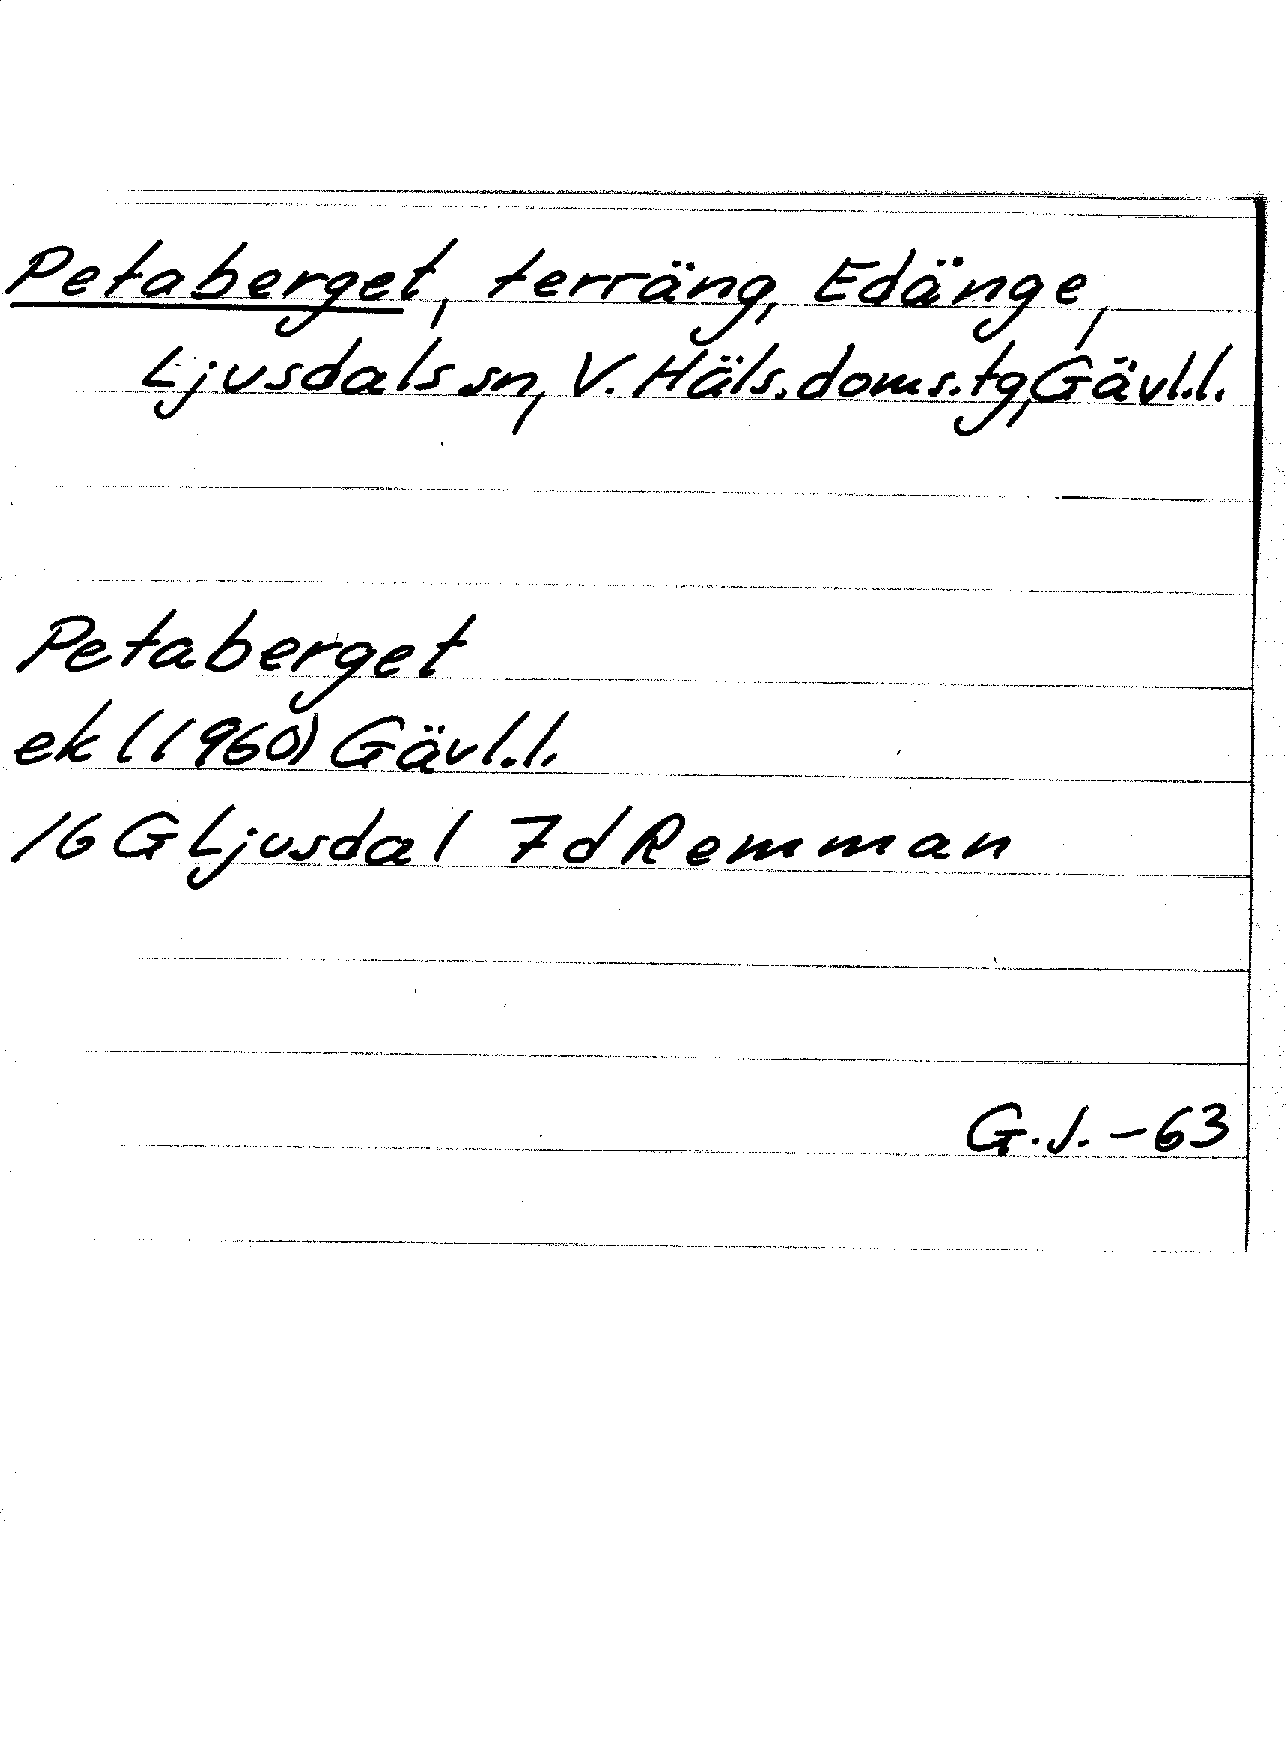 Petaberget, terräng, Edänge,
Ljusdals sn, V. Häls. doms.tg, Gävl.l.
Petaberget
ek (1960) Gävl.l.
16 G Ljusdal 7 d Remman
G.J. -63